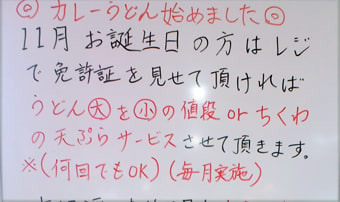 ◎カレーうどん始めました◎
11月お誕生日の方はレジ
で免許証を見せて頂ければ
うどん大を小の値段orちくわ
の天ぷらサービスさせて頂きます。
※(何回でもOK)(毎月実施)